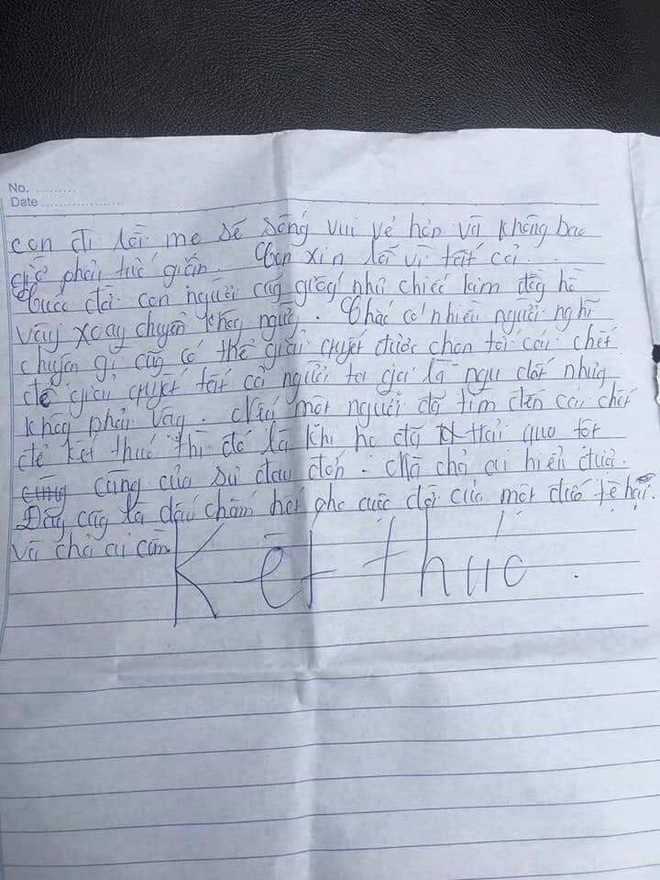 No. ..........
Date ....................
con đi rồi mẹ sẽ sống vui vẻ hơn và không bao
giờ phải tức giận. Con xin lỗi vì tất cả.
Cuộc đời con người cũg giốg như chiếc kim đồg hồ
vậy xoay chuyển khôg ngừg. Chắc có nhiều người nghĩ
chuyện gì cũg có thể giải quyết được chọn tới cái chết
để giải quyết tất cả người ta gọi là ngu dốt nhưg
khôg phải vậy. Nếu một người đã tìm đến cái chết
để kết thúc thì đó là khi họ đã trải qua tột
cùng của sự đau đớn. Mà chả ai hiểu được.
Đây cũg là dấu chấm hết cho cuộc đời của một đứa tệ hại.
Và chả ai cần
Kết thúc.